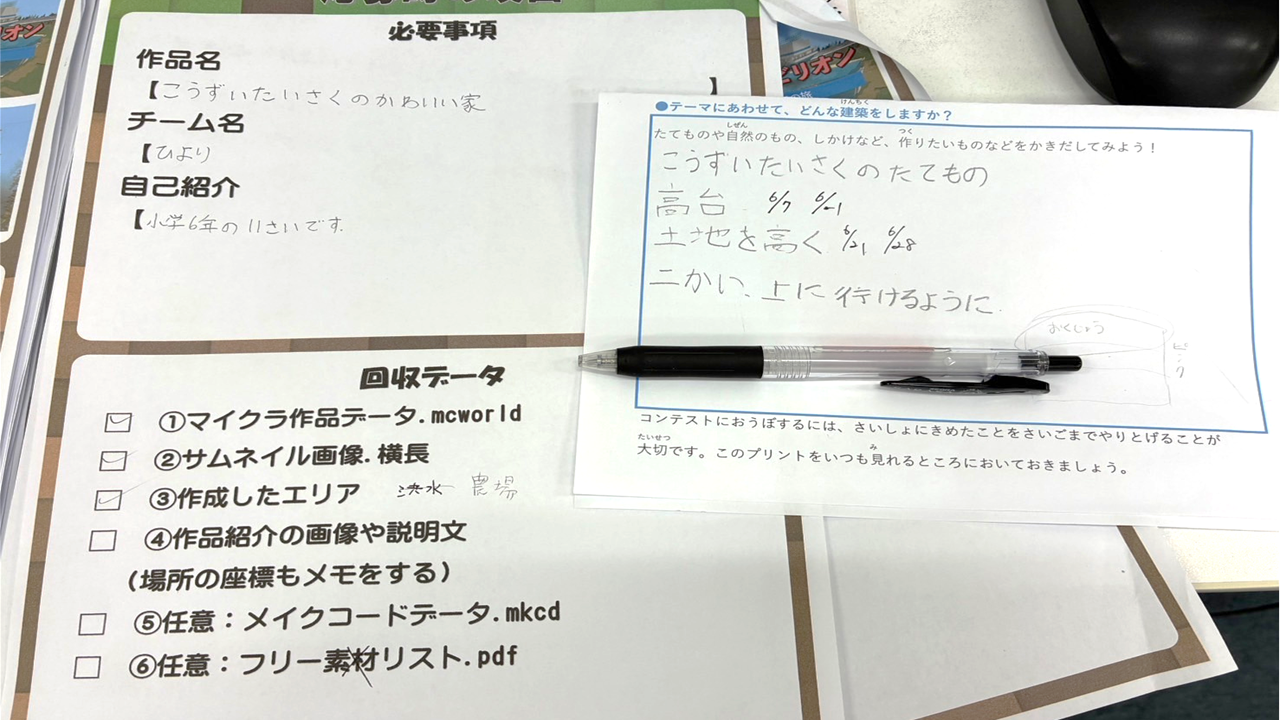 必要事項
作品名
【こうずいたいさくのかわいい家 】
チーム名
【ひより
自己紹介
【小学6年の11さいです
回収データ
①マイクラ作品データ.mcworld
②サムネイル画像.横長
③作成したエリア 洪水 農場
④作品紹介の画像や説明文
(場所の座標もメモをする)
⑤任意：メイクコードデータ.mkcd
⑥任意：フリー素材リスト.pdf
オン
ビリオン
●テーマにあわせて、どんな建築をしますか？
けんちく
たてものや自然のもの、しかけなど、作りたいものなどをかきだしてみよう！
しぜん つく
こうずいたいさくのたてもの
高台 6/7
土地を高く 6/21 6/28
二かい、上に行けるように
おくじょう
ピンク
コンテストにおうぼするには、さいしょにきめたことをさいごまでやりとげることが
たいせつ
大切です。このプリントをいつも見れるところにおいておきましょう。
み